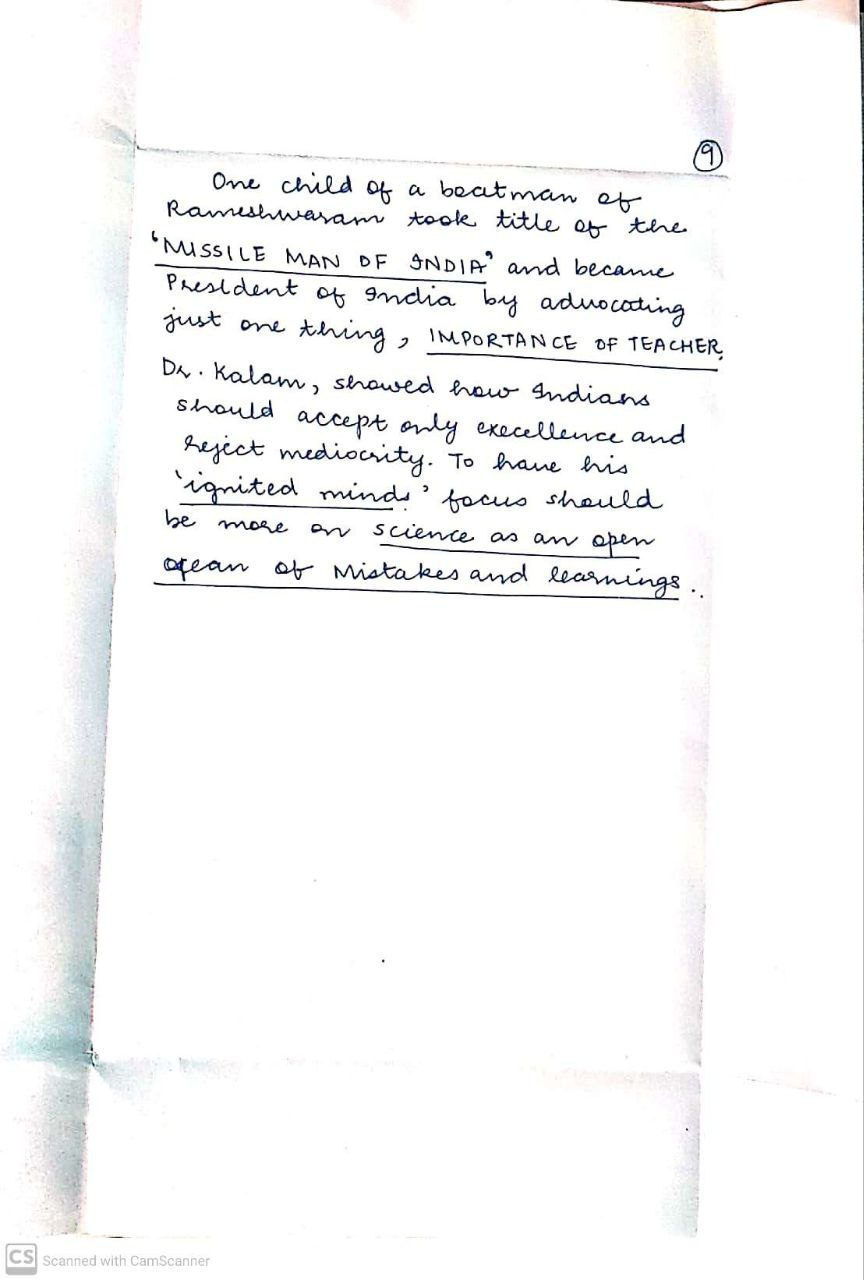 9
One child of a boatman of
Rameshwaram took title of the
'MISSILE MAN OF INDIA' and became
President of India by advocating
just one thing, IMPORTANCE OF TEACHER.
Dr. Kalam, showed how Indians
should accept only execellence and
reject mediocrity. To have his
'ignited minds' focus should
be more on science as an open
ocean of Mistakes and learnings..
CS Scanned with CamScanner